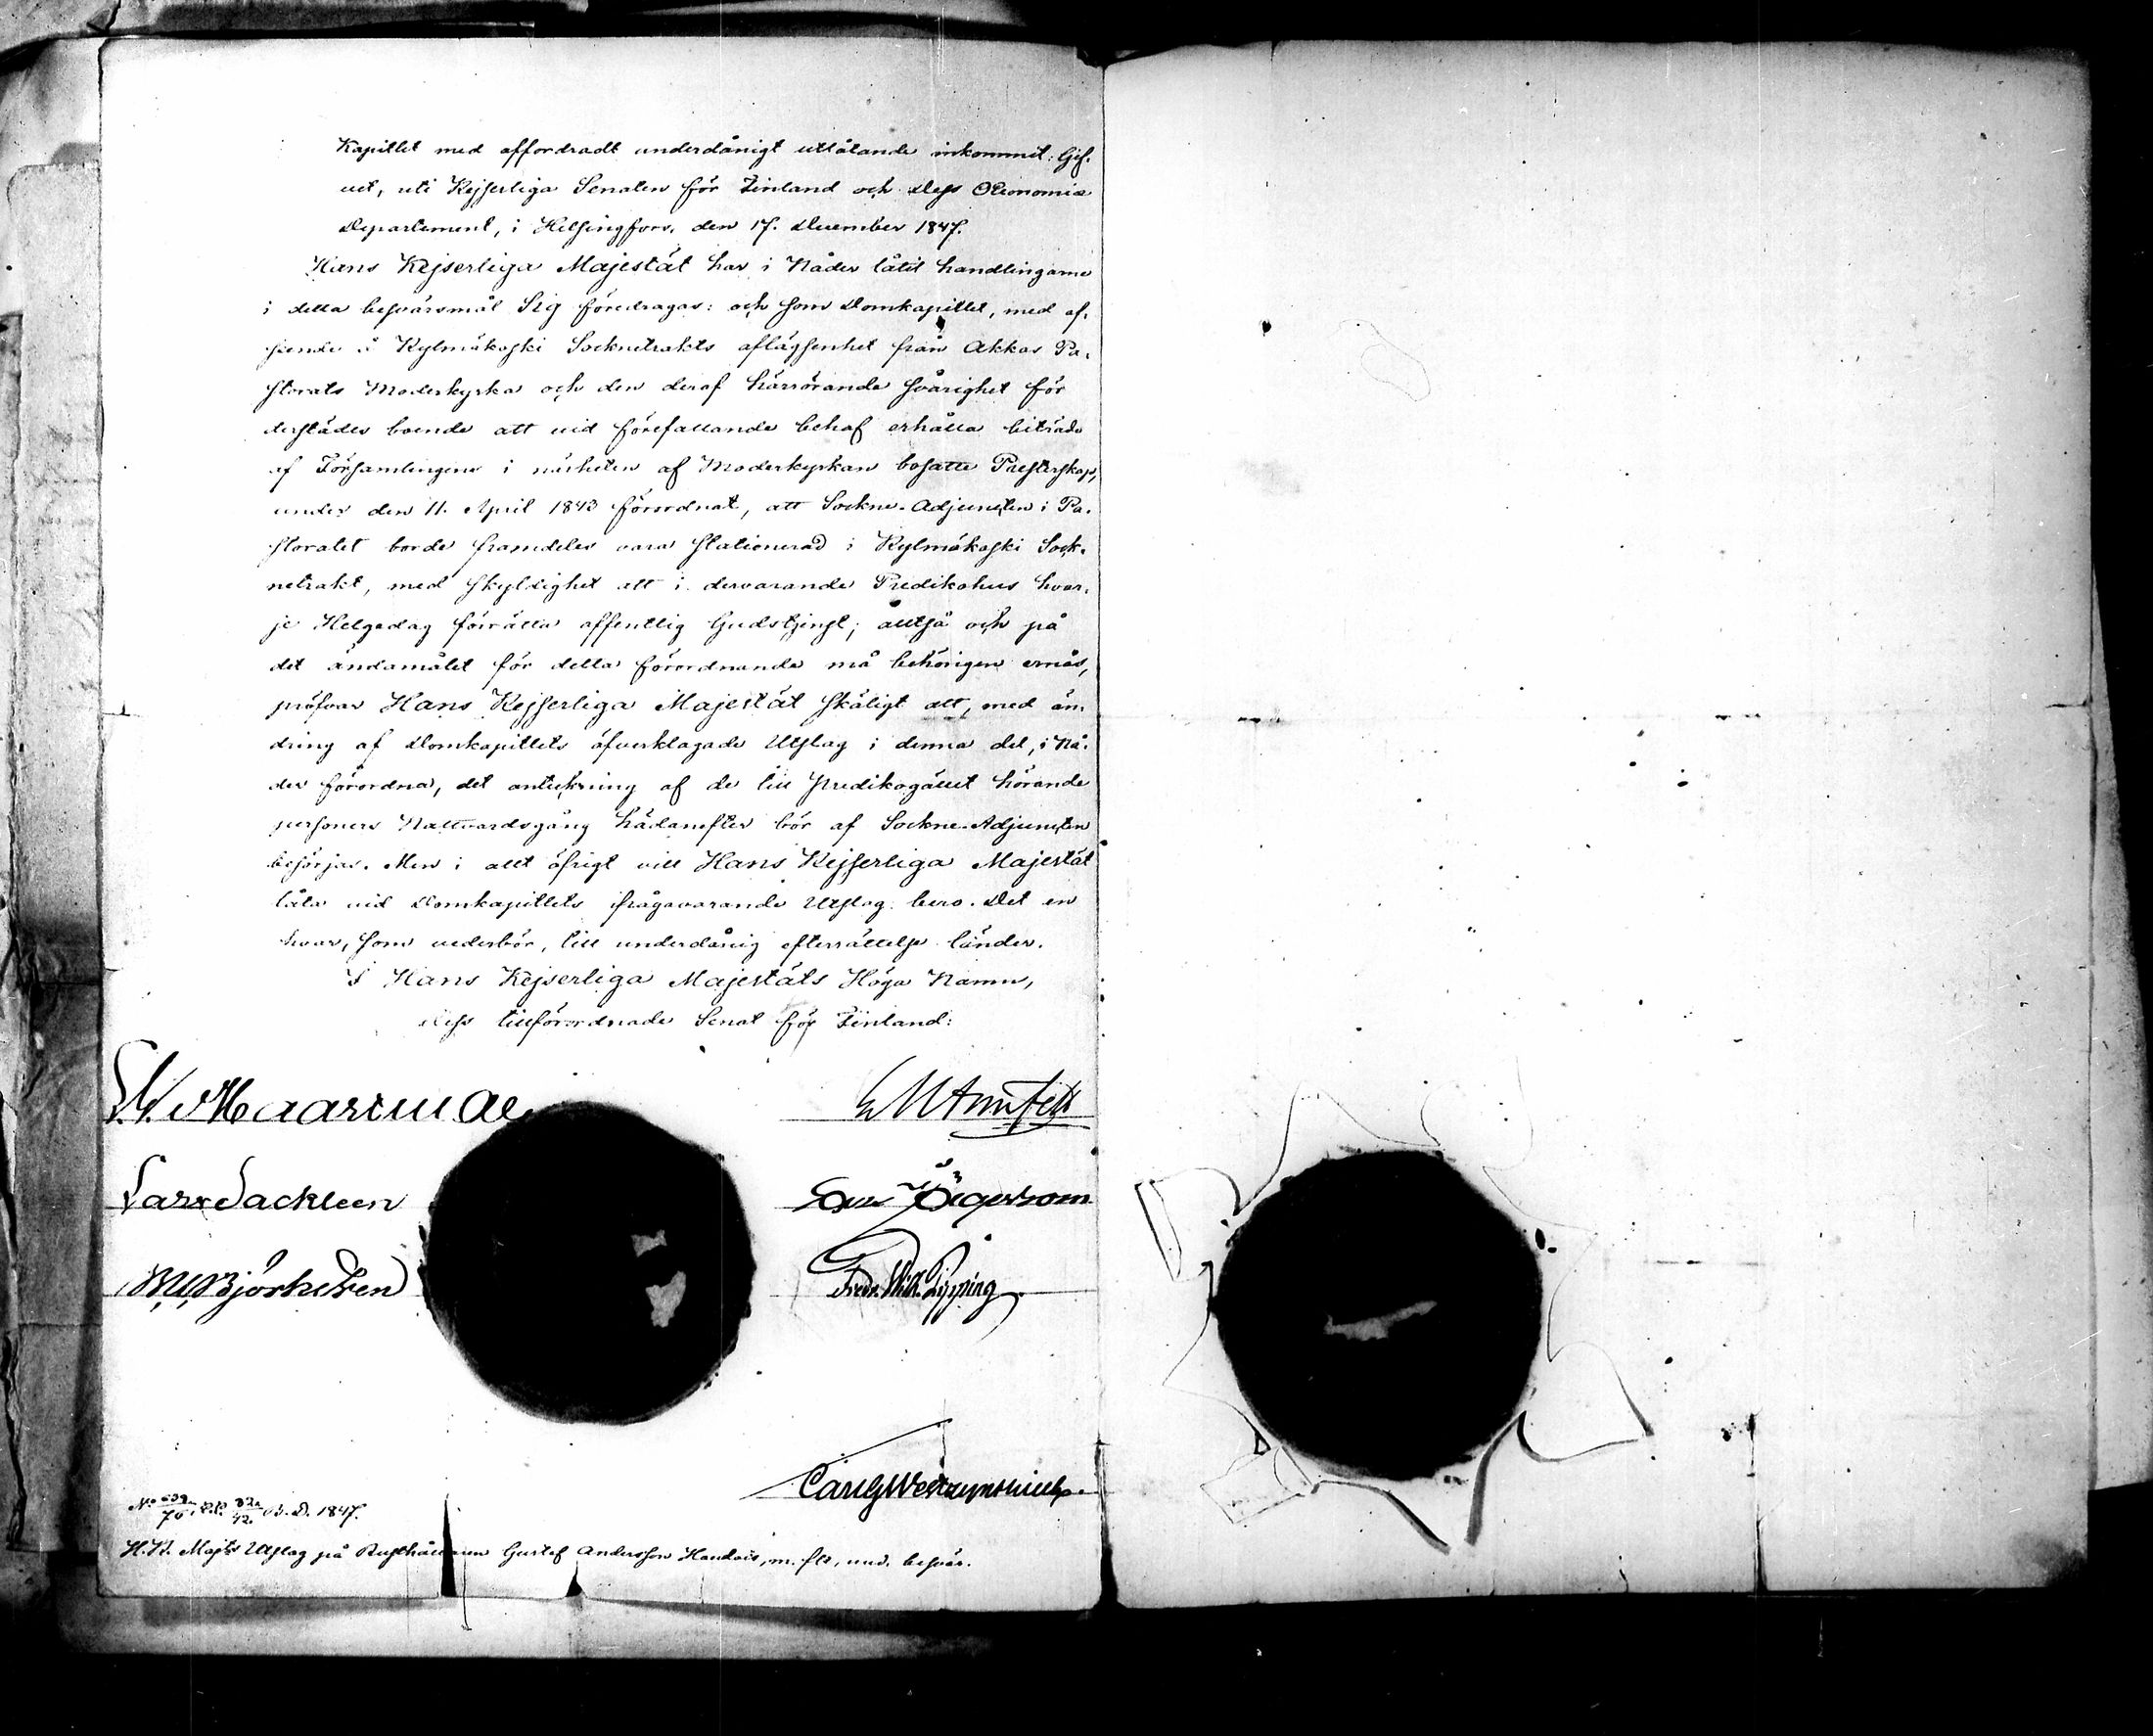 Kapitlet med affordradt underdånigt utlåtande inkommit; Gif-
vet, uti Kejserliga Senaten för Finland och dess Oeconomiae
Departement, i Helsingfors, den 17. December 1847.
Hans Kejserliga Majestät har i Nåder låtit handlingarne
i detta besvärsmål Sig föredragas: och som Domkapitlet, med af-
seende å Kylmäkoski Socknetrakts aflägsenhet från Akkas Pa-
storats Moderkyrka och den deraf härrörande svårighet för
derstädes boende att vid förefallande behof erhålla biträde
af Församlingens i närheten af Moderkyrkan bosatte Presterskap,
under den 11. April 1843 förordnat, att Sockne-Adjuncten i Pa-
storatet borde framdeles vara stationerad i Kylmäkoski Sock-
netrakt, med skyldighet att i dervarande Predikohus hvar-
je Helgedag förrätta offentlig Gudstjenst; alltså och på
det ändamålet för detta förordnande må behörigen ernås,
pröfvar Hans Kejserliga Majestät skäligt att, med än-
dring af Domkapitlets öfverklagade Utslag i denna del, i Nå-
der förordna, det anteckning af de till predikogället hörande
personers Nattvardsgång hädanefter bör af Sockne-Adjuncten
besörjas. Men i allt öfrigt vill Hans Kejserliga Majestät
låta vid Domkapitlets ifrågavarande Utslag bero. Det en
hvar, som vederbör, till underdånig efterrättelse länder.
I Hans Kejserliga Majestäts Höga Namn,
Dess tillförordnade Senat för Finland:
Haartman
Lars Sackleen
Björkesten
Fredr. Wilh. Pipping
B. D. 1847.
H. K. Majts Utslag på Rusthållaren Gustaf Andersson m. fles, und. besvär.